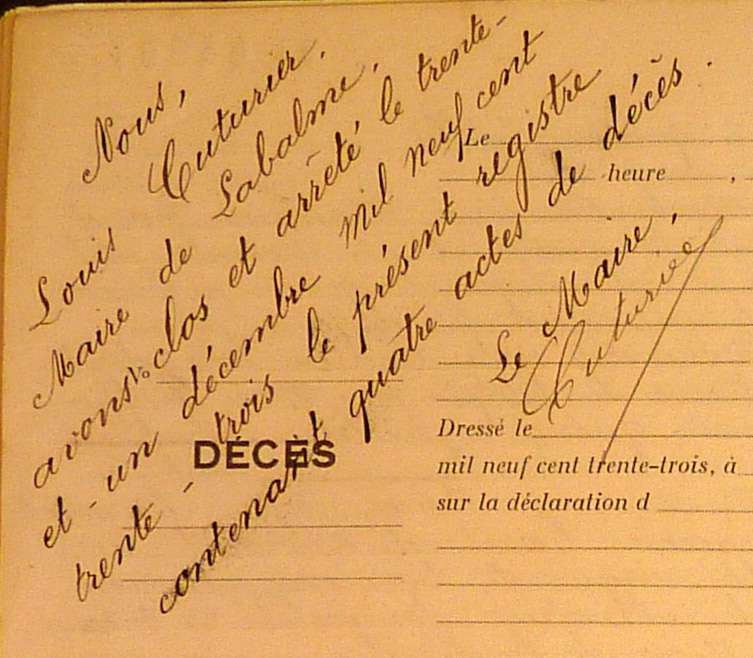 Nous,
Louis Cuturier,
Maire de Labalme,
avons clos et arrêté le trente-
et-un décembre mil neuf cent
trente-trois le présent registre
contenant quatre actes de décès.
Le Maire,
Cuturier
DÉCÈS
Le
heure ,
Dressé le
mil neuf cent trente-trois, à
sur la déclaration d